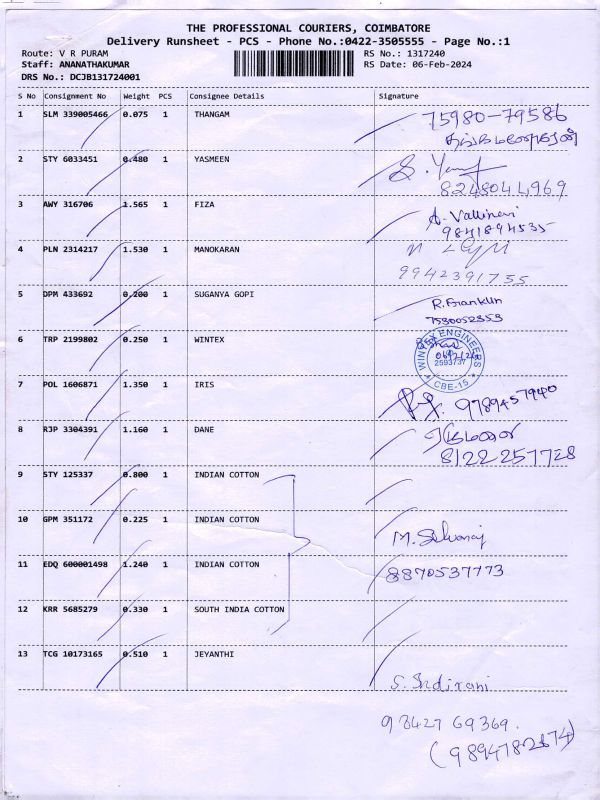 THE PROFESSIONAL COURIERS, COIMBATORE
Delivery Runsheet - PCS - Phone No.:0422-3505555 - Page No.:1
Route: V R PURAM RS No.: 1317240
Staff: ANANATHAKUMAR RS Date: 06-Feb-2024
DRS No.: DCJB131724001
S No Consignment No Weight PCS Consignee Details Signature
1 SLM 339005466 0.075 1 THANGAM 75980-79586
2 STY 6033451 0.480 1 YASMEEN
8248044969
3 AWY 316706 1.565 1 FIZA A. Vallinavi
9841894535
4 PLN 2314217 1.530 1 MANOKARAN
9942391755
5 DPM 433692 0.200 1 SUGANYA GOPI R. Franklin
7530052353
6 TRP 2199802 0.250 1 WINTEX WINTEX ENGINEERS
2593737
CBE-15
7 POL 1606871 1.350 1 IRIS 9789457940
8 RJP 3304391 1.160 1 DANE
8122 257728
9 STY 125337 0.800 1 INDIAN COTTON
10 GPM 351172 0.225 1 INDIAN COTTON M. Selvaraj
11 EDQ 600001498 1.240 1 INDIAN COTTON 8870537773
12 KRR 5685279 0.330 1 SOUTH INDIA COTTON
13 TCG 10173165 0.510 1 JEYANTHI
S. Indirani
98427 69369.
(9894782674)